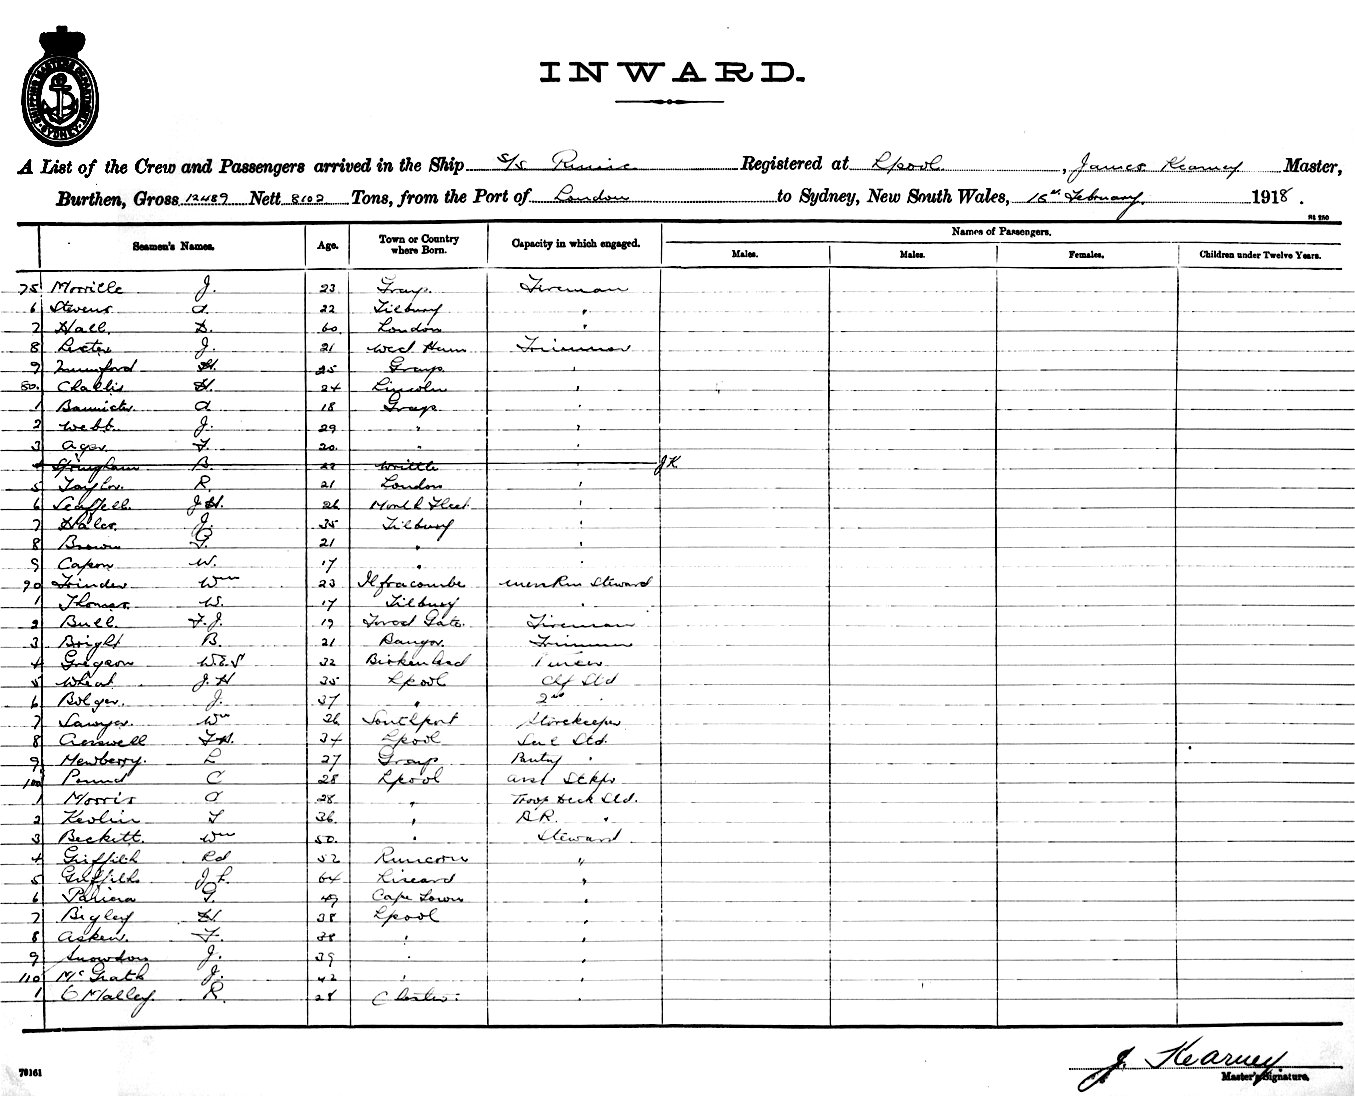 SHIPPING MASTERS DEPARTMENT SYDNEY
INWARD.
A List of the Crew and Passengers arrived in the Ship S/S Runic Registered at Lpool, James Kearney Master,
Burthen, Gross 12489 Nett 8102 Tons, from the Port of London to Sydney, New South Wales, 15th February 1918.
Seamen's Names. Age. Town or Country where Born. Capacity in which engaged. Names of Passengers.
Males. Males. Females. Children under Twelve Years.
75 J. 23 Grays. Fireman
6 Stevens A. 22 Tilbury "
7 Hall. D. 60. London "
8 J. 21 West Ham Trimmer
9 Mumford H. 25 Grays "
80. Challis H. 24 Lincoln "
1 Bannister A 18 Grays "
2 Webb. J. 29 " "
3 Ager. F. 20. " "
4 B. 22 Writtle JK
5 Taylor. R. 21 London "
6 J H. 26
7 Hales. J. 35 Tilbury "
8 Brown G. 21 " "
9 Capon W. 17 " "
90 Trinder Wm 23 Ilfracombe Steward
1 Thomas. W. 17 Tilbury "
2 Bull. F.J. 19 Forest Gate. Fireman
3 Bright B. 21 Bangor. Trimmer
4 Gregson W.E.S 32 Birkenhead Purser
5 Wheat J.H 35 Lpool Chf Std
6 Bolger. J. 37 " 2nd "
7 Sawyer. Wm 26 Southport Storekeeper
8 F.H. 34 Lpool Std.
9 Mewberry. L 27 Grays Pantry "
100 Pound C 28 Lpool Asst Stkpr
1 Morris A 28 " Troop Deck Std.
2 F 36. " "
3 Beckett. Wm 50. " Steward
4 Griffith Rd 52 Runcorn "
5 Griffiths J 64 Liscard "
6 G. 49 Cape Town "
7 Bigley H 38 Lpool "
8 Asken. F. 38 " "
9 Snowdon J. 39 " "
110 McGrath J. 42 " "
1 O'Malley. R. 28 Chester. "
J. Kearney
Master's Signature.
79161